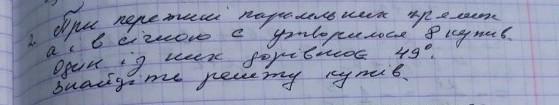 2. При перетині паралельних прямих
а і в січною с утворилося 8 кутів.
Один із них дорівнює 49°.
Знайдіте решту кутів.